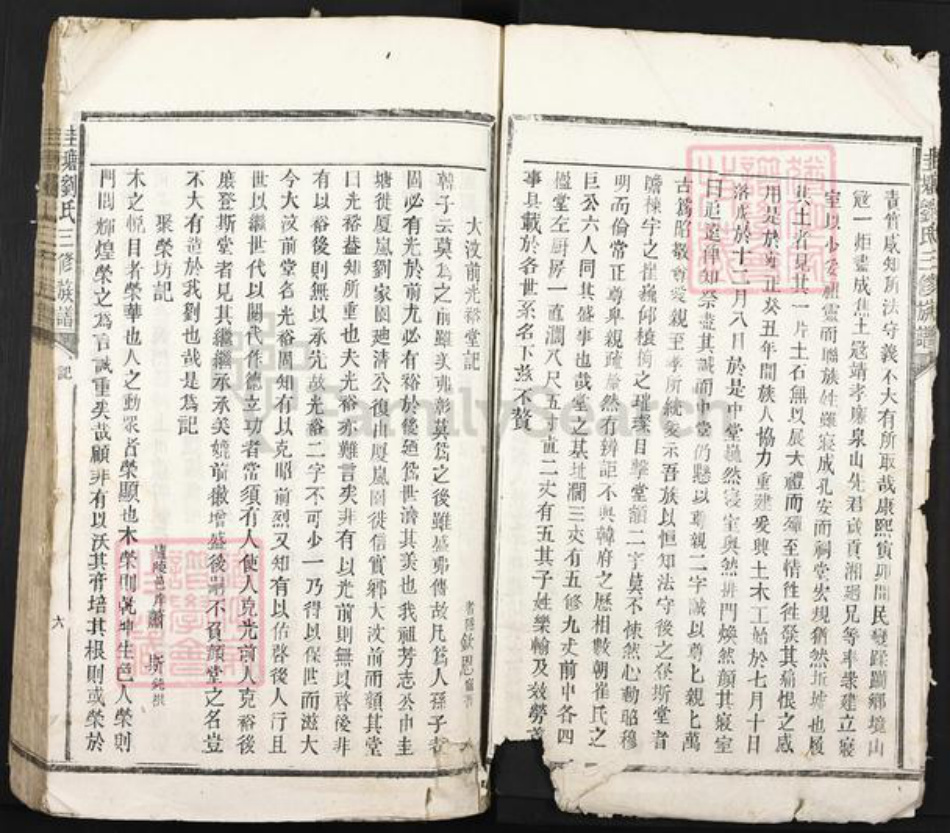 責實咸知所法守義不大有所取哉康熙寅卯間民變蹂躪鄉境山
寇一炬盡成焦土寇靖孝廉泉山先君歲貢湘廻兄等率衆建立寢
室以少安祖靈而聯族姓雖寢成孔安而祠堂宏規猶然坵墟也履
其土者見其一片土石無以展大禮而殫至情徃徃發其痛恨之感
用是於雍正癸丑年間族人協力重建爰興土木工始於七月十日
落成於十二月八日於是中堂巍然寢室奐然排門煥然顏其寢室
曰追遠俾知祭盡其誠而中堂仍懸以尊親二字誠以尊上親上萬
古為昭敬尊愛親至孝所統爰示吾族以恒知法守後之登斯堂者
瞻棟宇之崔巍仰榱桷之璀璨目擊堂額二字莫不悚然心動昭穆
明而倫常正尊卑親疏㷀然有辨詎不與韓府之歷相數朝崔氏之
巨公六人同其盛事也哉堂之基址濶三丈有五修九丈前中各四
楹堂左厨房一直濶八尺五寸直二丈有五其子姓樂輸及效勞
事具載於各世系名下茲不贅
圭塘劉氏三修族譜
大汶前光裕堂記
欽恩
韓子云莫為之前雖美弗彰莫為之後雖盛弗傳故凡為人孫子者
固必有光於前尤必有裕於後廼為世濟其美也我祖芳志公由圭
塘徙厦嵐劉家園廻清公復由厦嵐園徙信實鄉大汶前而顏其堂
曰光裕葢知所重也夫光裕亦難言矣非有以光前則無以啓後非
有以裕後則無以承先故光裕二字不可少一乃得以保世而滋大
今大汶前堂名光裕固知有以克昭前烈又知有以佑啓後人行且
世以繼世代以關代作德立功者常須有人使人克光前人克裕後
庶登斯堂者見其繼繼承承美媲前徽增盛後嗣不負顏堂之名豈
不大有造於我劉也哉是為記
聚榮坊記
廬陵邑庠蕭 斯 撰
木之悅目者榮華也人之動衆者榮顯也木榮則乾坤生色人榮則
門閭輝煌榮之為言誠重矣哉顧非有以沃其膏培其根則或榮於
圭塘劉氏三修族譜 記 六
FamilySearch